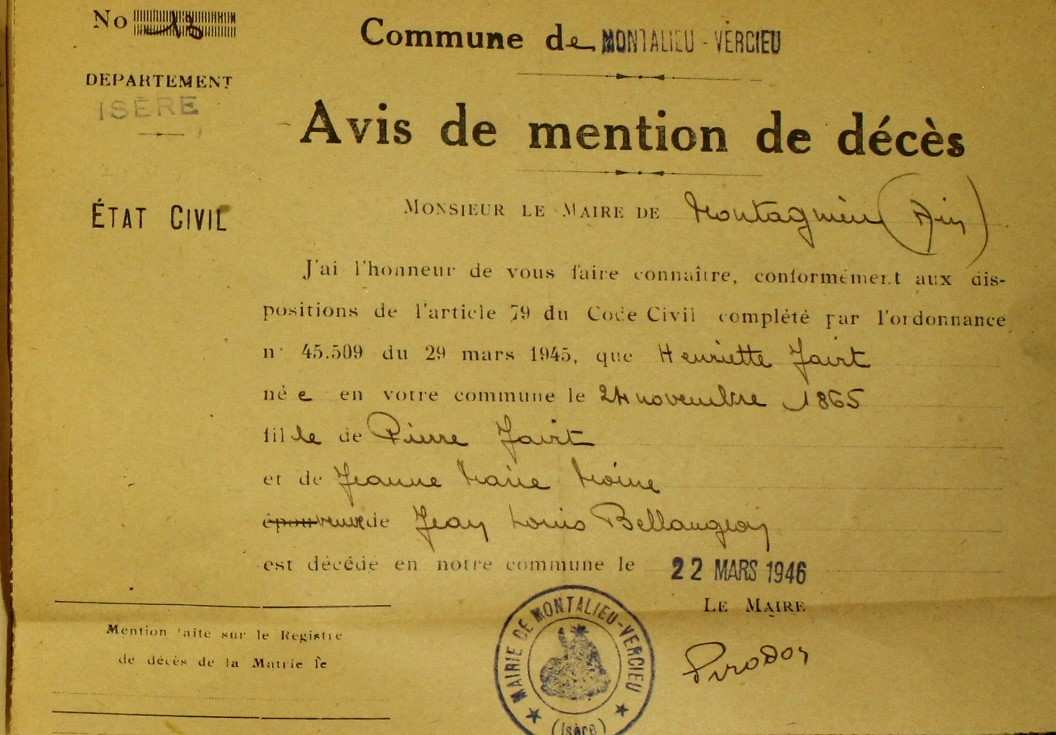 No 18
Commune de MONTALIEU - VERCIEU
DEPARTEMENT
ISÈRE
Avis de mention de décès
ÉTAT CIVIL
MONSIEUR LE MAIRE DE Montagnieu (Ain)
J'ai l'honneur de vous faire connaître, conformément aux dis-
positions de l'article 79 du Code Civil complété par l'ordonnance
n° 45.509 du 29 mars 1945, que Henriette
née en votre commune le 24 novembre 1865
fille de Pierre
et de Jeanne Marie Moine
veuve de Jean Louis
est décédé en notre commune le 22 MARS 1946
LE MAIRE
Mention faite sur le Registre
de décès de la Mairie le
MAIRIE DE MONTALIEU-VERCIEU
(Isère)